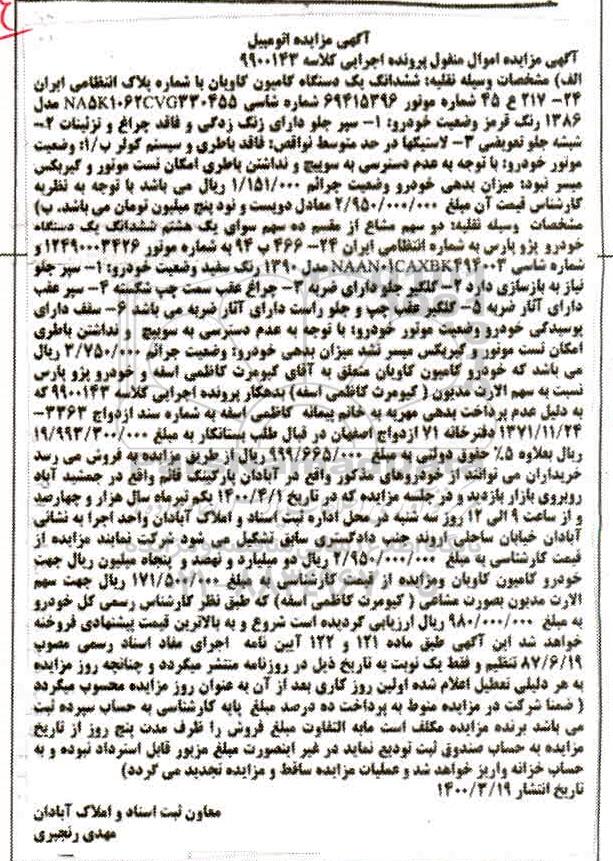 آگهی مزایده اتومبیل
آگهی مزایده اموال منقول پرونده اجرایی کلاسه ۹۹۰۰۱۴۳
الف) مشخصات وسیله نقلیه: ششدانگ یک دستگاه کامیون کاویان با شماره پلاک انتظامی ایران
۲۴- ۲۱۷ ع ۴۵ شماره موتور ۶۹۴۱۵۳۹۶ شماره شاسی NA۵K۱۰۶۲CVG۳۳۰۴۵۵ مدل
۱۳۸۶ رنگ قرمز وضعیت خودرو: ۱- سپر جلو دارای زنگ زدگی و فاقد چراغ و تزئینات ۲-
شیشه جلو تعویضی ۳- لاستیکها در حد متوسط نواقص: فاقد باطری و سیستم کولر ب/۱: وضعیت
موتور خودرو: با توجه به عدم دسترسی به سوییچ و نداشتن باطری امکان تست موتور و گیربکس
میسر نبود: میزان بدهی خودرو وضعیت جرائم ۱/۱۵۱/۰۰۰ ریال می باشد با توجه به نظریه
کارشناس قیمت آن مبلغ ۲/۹۵۰/۰۰۰/۰۰۰ معادل دویست و نود پنج میلیون تومان می باشد. ب)
مشخصات وسیله نقلیه: دو سهم مشاع از مقسم ده سهم سوای یک هشتم ششدانگ یک دستگاه
خودرو پژو پارس به شماره انتظامی ایران ۲۴- ۴۶۶ ب ۹۴ به شماره موتور ۱۲۴۹۰۰۰۳۴۲۶ و
شماره شاسی NAAN۰۱CAXBK۴۹۴۰۰۳ مدل ۱۳۹۰ رنگ سفید وضعیت خودرو: ۱- سپر جلو
نیاز به بازسازی دارد ۲- گلگیر جلو دارای ضربه ۳- چراغ عقب سمت چپ شکسته ۴- سپر عقب
دارای آثار ضربه ۵- گلگیر عقب چپ و جلو راست دارای آثار ضربه می باشد ۶- سقف دارای
پوسیدگی خودرو وضعیت موتور خودرو: با توجه به عدم دسترسی به سوییچ و نداشتن باطری
امکان تست موتور و گیربکس میسر نشد میزان بدهی خودرو: وضعیت جرائم ۳/۷۵۰/۰۰۰ ریال
می باشد که خودرو کامیون کاویان متعلق به آقای کیومرث کاظمی اسفه و خودرو پژو پارس
نسبت به سهم الارث مدیون ( کیومرث کاظمی اسفه) بدهکار پرونده اجرایی کلاسه ۹۹۰۰۱۴۳ که
به دلیل عدم پرداخت بدهی مهریه به خانم پیمانه کاظمی اسفه به شماره سند ازدواج ۳۳۶۳-
۱۳۷۱/۱۱/۲۴ دفترخانه ۷۱ ازدواج اصفهان در قبال طلب بستانکار به مبلغ ۱۹/۹۹۳/۳۰۰/۰۰۰
ریال بعلاوه ۵٪ حقوق دولتی به مبلغ ۹۹۹/۶۶۵/۰۰۰ ریال از طریق مزایده به فروش می رسد
خریداران می توانند از خودروهای مذکور واقع در آبادان پارکینگ قائم واقع در جمشید آباد
روبروی بازار بازدید و در جلسه مزایده که در تاریخ ۱۴۰۰/۴/۱ یکم تیرماه سال هزار و چهارصد
و از ساعت ۹ الی ۱۲ روز سه شنبه در محل اداره ثبت اسناد و املاک آبادان واحد اجرا به نشانی
آبادان خیابان ساحلی اروند جنب دادگستری سابق تشکیل می شود شرکت نمایند مزایده از
قیمت کارشناسی به مبلغ ۲/۹۵۰/۰۰۰/۰۰۰ ریال دو میلیارد و نهصد و پنجاه میلیون ریال جهت
خودرو کامیون کاویان ومزایده از قیمت کارشناسی به مبلغ ۱۷۱/۵۰۰/۰۰۰ ریال جهت سهم
الارث مدیون بصورت مشاعی ( کیومرث کاظمی اسفه) که طبق نظر کارشناس رسمی کل خودرو
به مبلغ ۹۸۰/۰۰۰/۰۰۰ ریال ارزیابی گردیده است شروع و به بالاترین قیمت پیشنهادی فروخته
خواهد شد این آگهی طبق ماده ۱۲۱ و ۱۲۲ آیین نامه اجرای مفاد اسناد رسمی مصوب
۸۷/۶/۱۹ تنظیم و فقط یک نوبت به تاریخ ذیل در روزنامه منتشر میگردد و چنانچه روز مزایده
به هر دلیلی تعطیل اعلام شده اولین روز کاری بعد از آن به عنوان روز مزایده محسوب میگردد
( ضمنا شرکت در مزایده منوط به پرداخت ده درصد مبلغ پایه کارشناسی به حساب سپرده ثبت
می باشد برنده مزایده مکلف است مابه التفاوت مبلغ فروش را ظرف مدت پنج روز از تاریخ
مزایده به حساب صندوق ثبت تودیع نماید در غیر اینصورت مبلغ مزبور قابل استرداد نبوده و به
حساب خزانه واریز خواهد شد و عملیات مزایده ساقط و مزایده تجدید می گردد)
تاریخ انتشار ۱۴۰۰/۳/۱۹
معاون ثبت اسناد و املاک آبادان
مهدی رنجبری